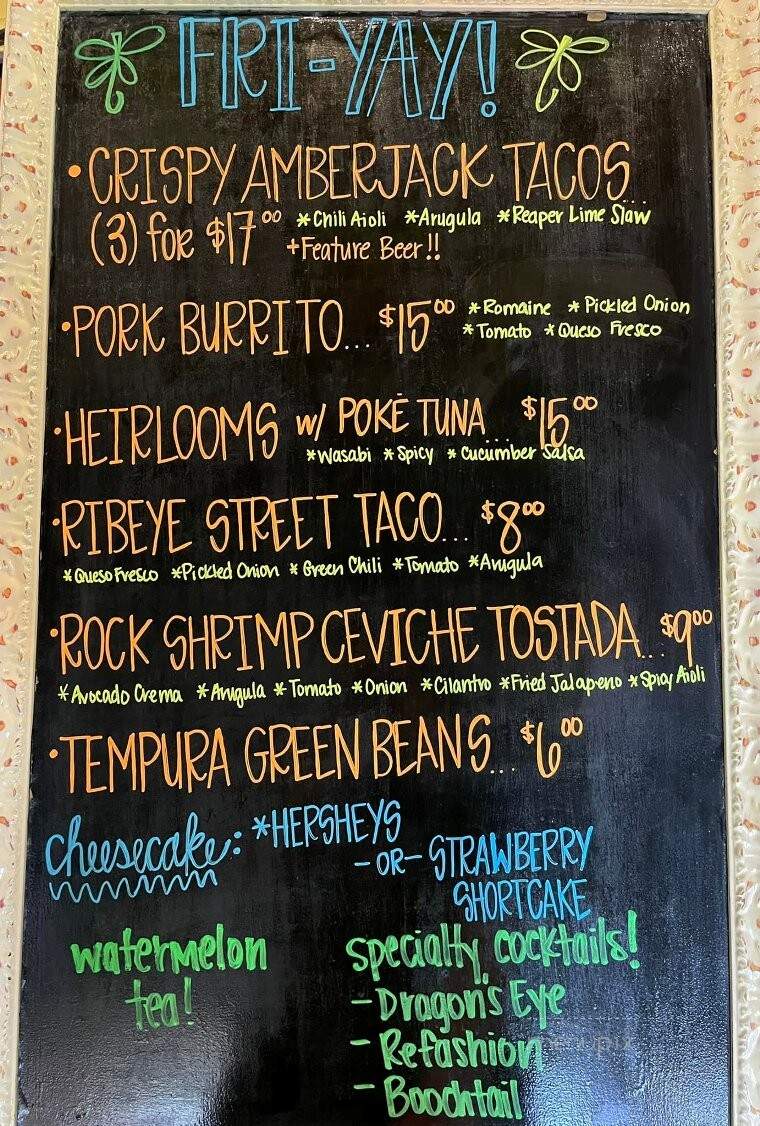 FRI-YAY!
• CRISPY AMBERJACK TACOS...
(3) for $17.00 *Chili Aioli *Arugula *Reaper Lime Slaw
+Feature Beer!!
• PORK BURRITO... $15.00 *Romaine *Pickled Onion
*Tomato *Queso Fresco
• HEIRLOOMS w/ POKÉ TUNA... $15.00
*Wasabi *Spicy *Cucumber Salsa
• RIBEYE STREET TACO... $8.00
*Queso Fresco *Pickled Onion *Green Chili *Tomato *Arugula
• ROCK SHRIMP CEVICHE TOSTADA... $9.00
*Avocado Crema *Arugula *Tomato *Onion *Cilantro *Fried Jalapeno *Spicy Aioli
• TEMPURA GREEN BEANS... $6.00
Cheesecake: *HERSHEYS
-OR- STRAWBERRY
SHORTCAKE
watermelon
tea!
specialty cocktails!
- Dragon's Eye
- Refashion
- Boochtail